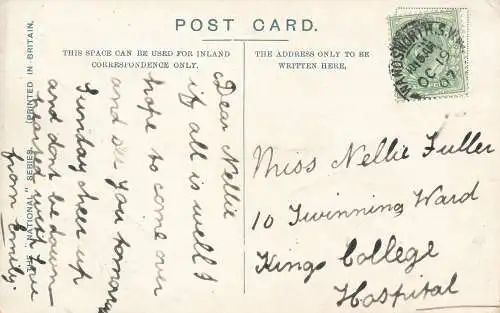 POST CARD.
THIS SPACE CAN BE USED FOR INLAND
CORRESPONDENCE ONLY.
THE ADDRESS ONLY TO BE
WRITTEN HERE.
THE "NATIONAL" SERIES.
(PRINTED IN BRITAIN.
WANDSWORTH.S.W.
OC 19
07
Dear Nellie
if all is well I
hope to come over
and see you tomorrow
Sunday cheer up
and dont be down
from Emily.
Miss Nellie Fuller
10 Twinning Ward
Kings College
Hospital